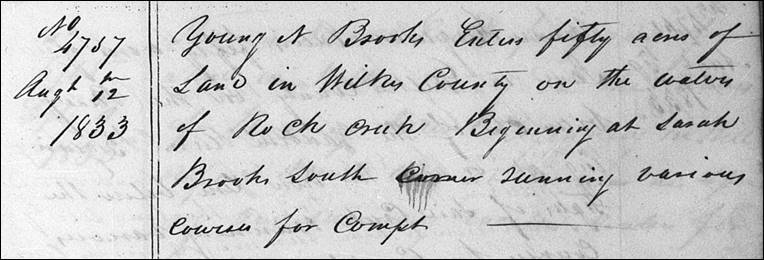 No
4757
Augt 12th
1833
Young N Brooks Enters fifty acres of
Land in Wilkes County on the waters
of Rock creek Beginning at Sarah
Brooks South Corner running various
courses for Compt